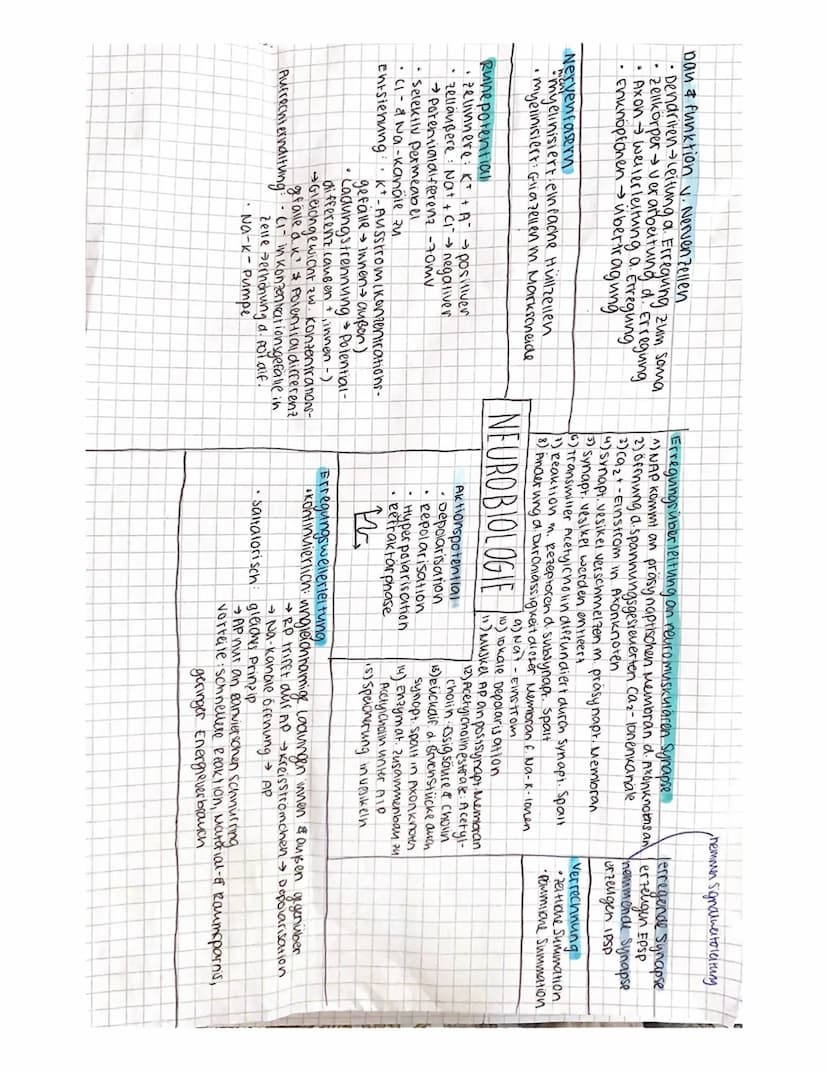 NEUROBIOLOGIE
Bau & Funktion v. Nervenzellen
• Dendriten → Leitung d. Erregung zum Soma
• Zellkörper → Verarbeitung d. Erregung
• Axon → Weiterleitung d. Erregung
• Endknöpfchen → Übertragung
Nervenfasern
• nicht myelinisiert: einfache Hüllzellen
• myelinisiert: Gliazellen m. Markscheide
Ruhepotential
• Zellinnere: K⁺ + A⁻ → positiver
• Zelläußere: Na⁺ + Cl⁻ → negativer
→ Potentialdifferenz -70mV
• Selektiv permeabel
• Cl⁻ & Na-Kanäle zu
Entstehung: • K⁺-Ausstrom (Konzentrations-
gefälle → innen → außen)
• Ladungstrennung → Potential-
differenz (außen +, innen -)
→ Gleichgewicht zw. Konzentrations-
gefälle d. K⁺ & Potentialdifferenz
Aufrechterhaltung: • Cl⁻ in Konzentrationsgefälle in
Zelle → Erhöhung d. Pot.dif.
• Na-K-Pumpe
Erregungsüberleitung an neuromuskulären Synapse
1) NAP kommt an präsynaptischen Membran d. Axonknotens an
2) Öffnung d. spannungsgesteuerten Ca2-Ionenkanäle
3) Ca2+-Einstrom in Axonknoten
4) Synapt. Vesikel verschmelzen m. präsynapt. Membran
5) Synapt. Vesikel werden entleert
6) Transmitter Acetylcholin diffundiert durch synapt. Spalt
7) Reaktion m. Rezeptoren d. subsynapt. Spalt
8) Änderung d. Durchlässigkeit dieser Membran f. Na-K-Ionen
9) Na⁺-Einstrom
10) lokale Depolarisation
11) Muskel AP an postsynapt. Membran
12) Acetylcholinesterase: Acetyl-
cholin → Essigsäure & Cholin
13) Rückdif. d. Bruchstücke durch
synapt. Spalt in Axonknoten
14) Enzymat. Zusammenbau zu
Acetylcholin unter ATP
15) Speicherung in Vesikeln
hemmen Signalweiterleitung
erregende Synapse
erzeugen EPSP
hemmende Synapse
erzeugen IPSP
Verrechnung
• zeitliche Summation
• räumliche Summation
Aktionspotential
• Depolarisation
• Repolarisation
• Hyperpolarisation
• Refraktärphase
Erregungsweiterleitung
• kontinuierlich: ungleichnamige Ladungen innen & außen gegenüber
→ RP trifft auf AP → Kreisströmchen → Depolarisation
→ Na-Kanäle Öffnung → AP
• saltatorisch: gleiches Prinzip
→ AP nur an Ranvierschen Schnürring
Vorteile: schnellere Reaktion, Material- & Raumsparnis,
geringer Energieverbrauch